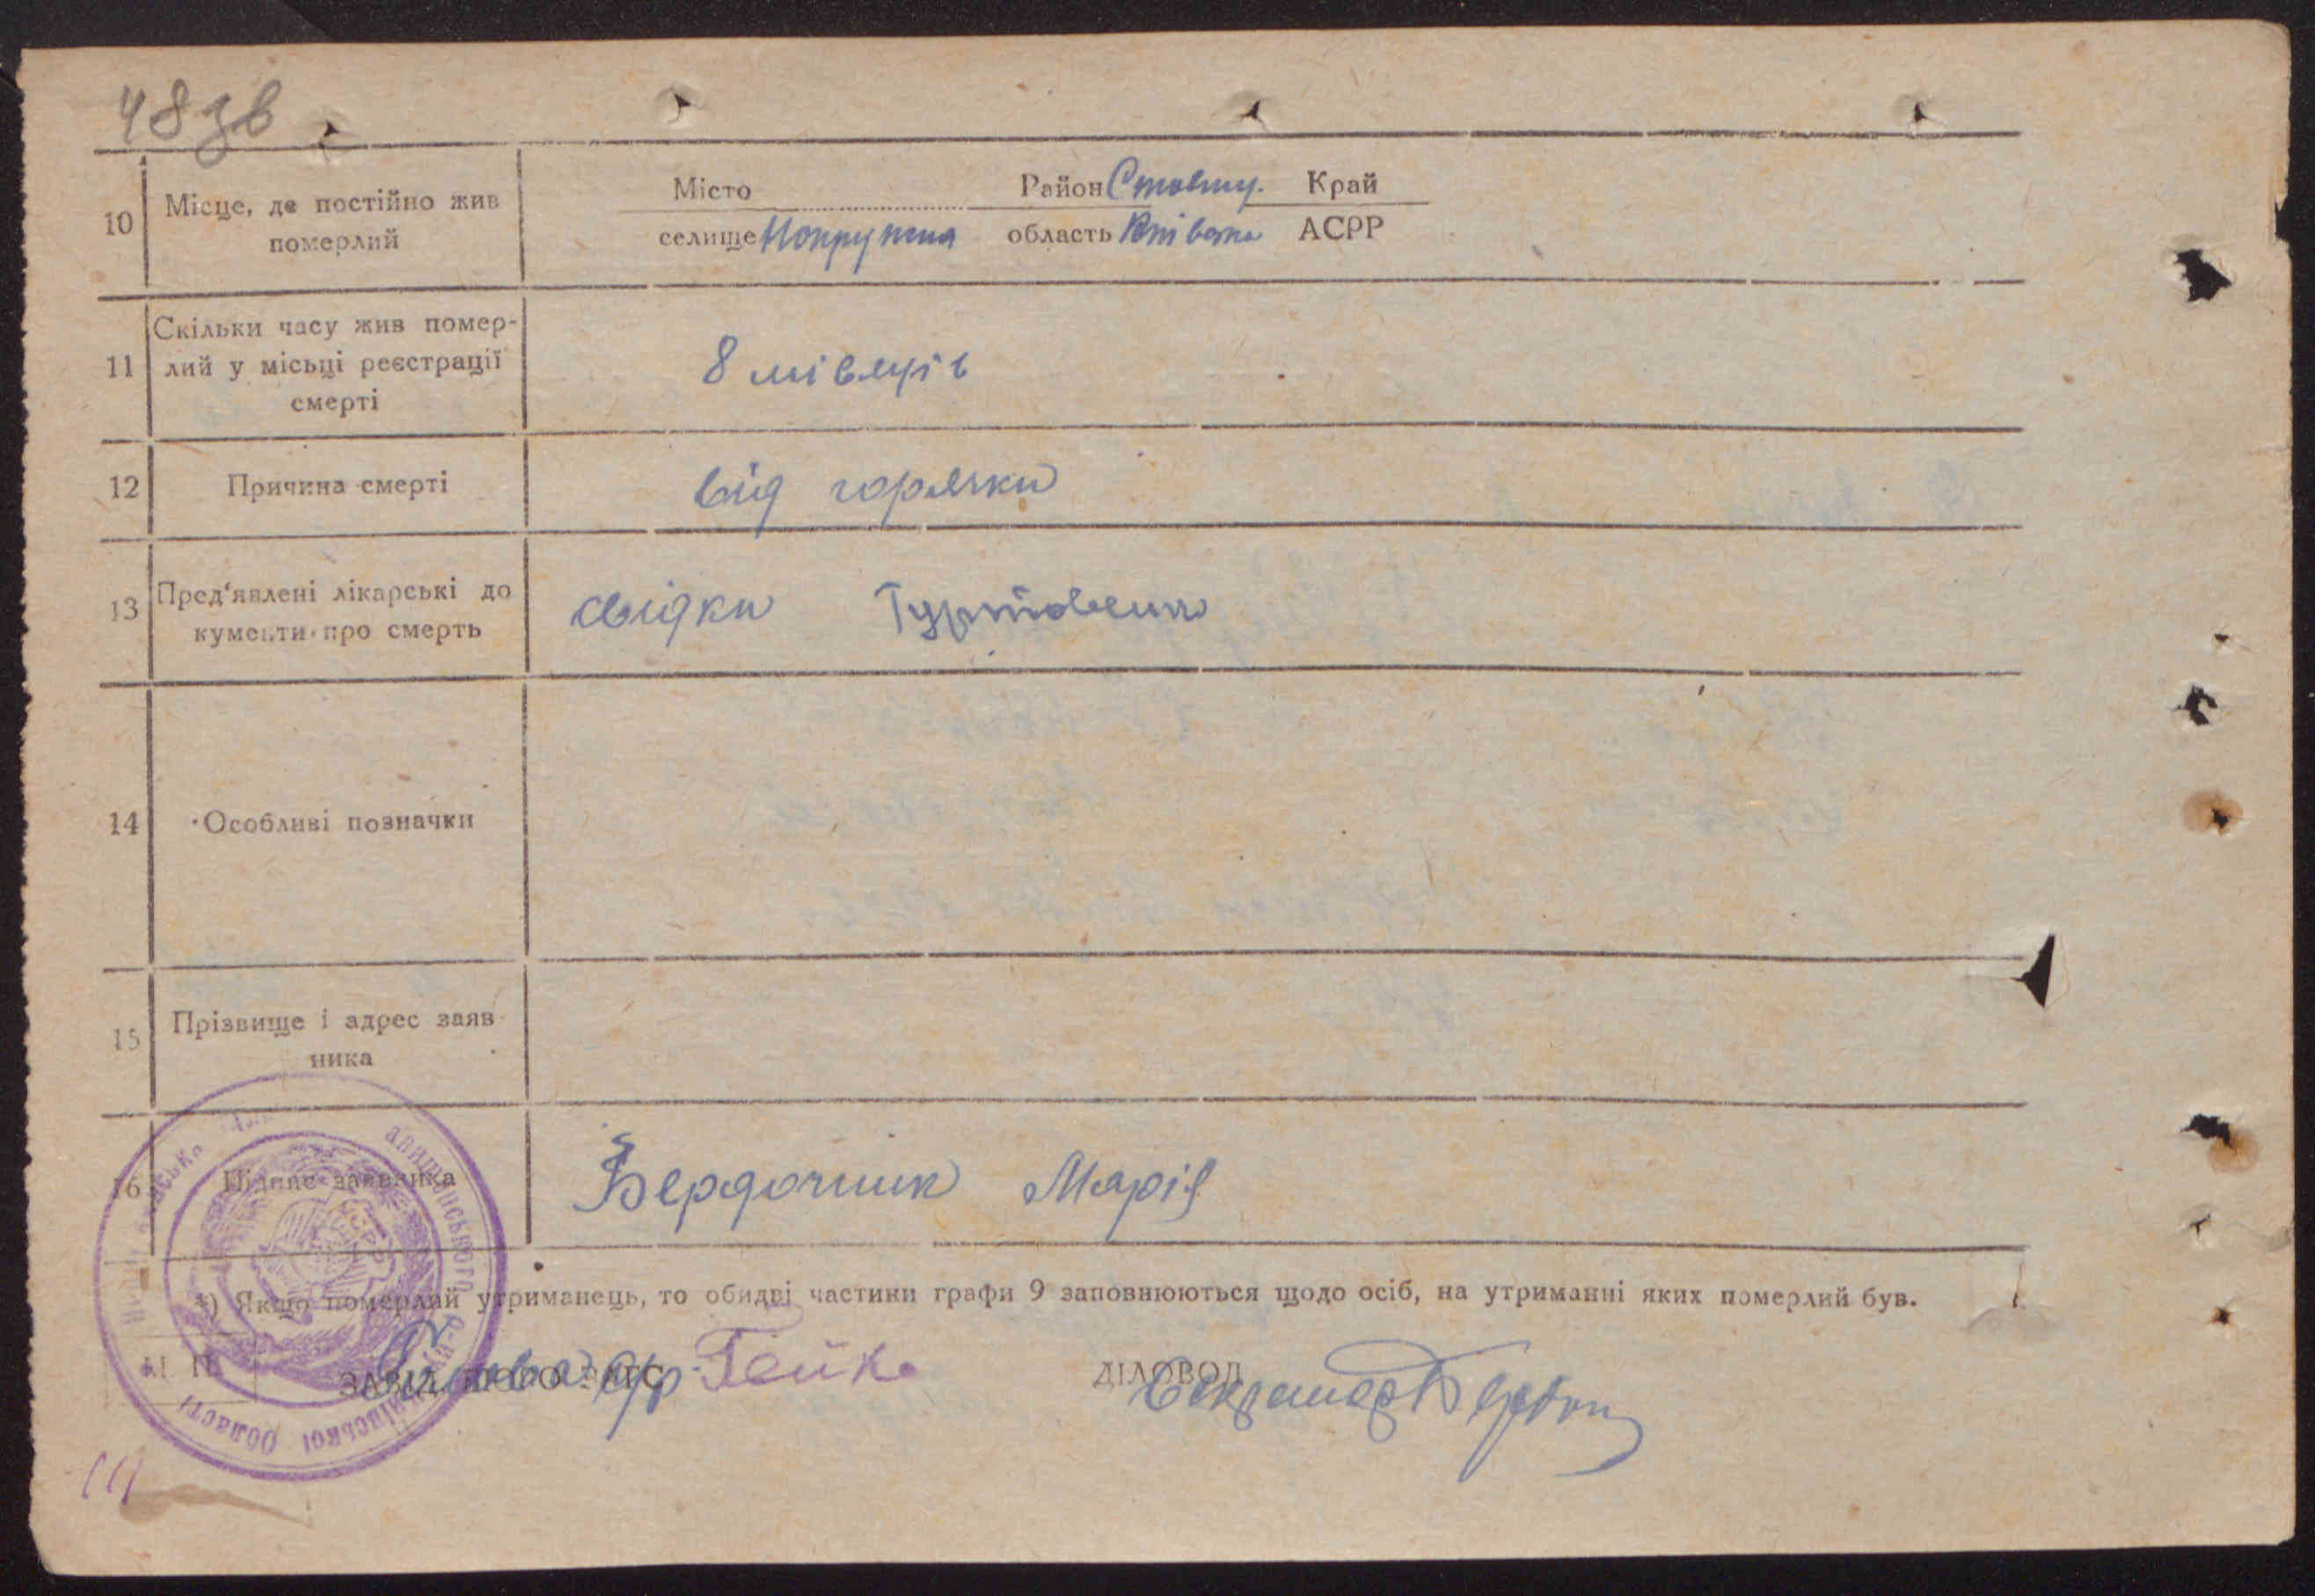 48зв
10 Місце, де постійно жив померлий
Місто Район Ставищ. Край
селище область АСРР
11 Скільки часу жив помер-
лий у місьці реєстрації
смерті
8 місяців
12 Причина смерті
від горячки
13 Пред'явлені лікарські до
кументи про смерть
свідки
14 Особливі позначки
15 Прізвище і адрес заяв
ника
16 Підпис заявника
Марія
*) Якщо померлий утриманець, то обидві частини графи 9 заповнюються щодо осіб, на утриманні яких померлий був.
М. П.
ДІЛОВОД
області